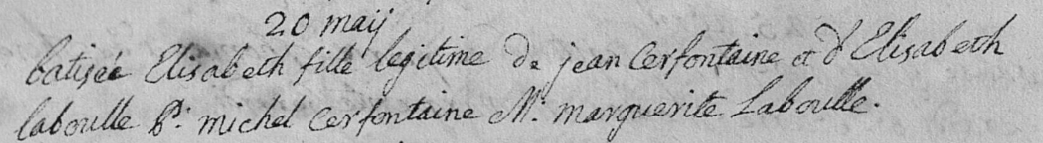 20 maij
batisée Elisabeth fille legitime de jean Cerfontaine et d'Elisabeth
laboulle P: michel Cerfontaine M: marguerite Laboulle.